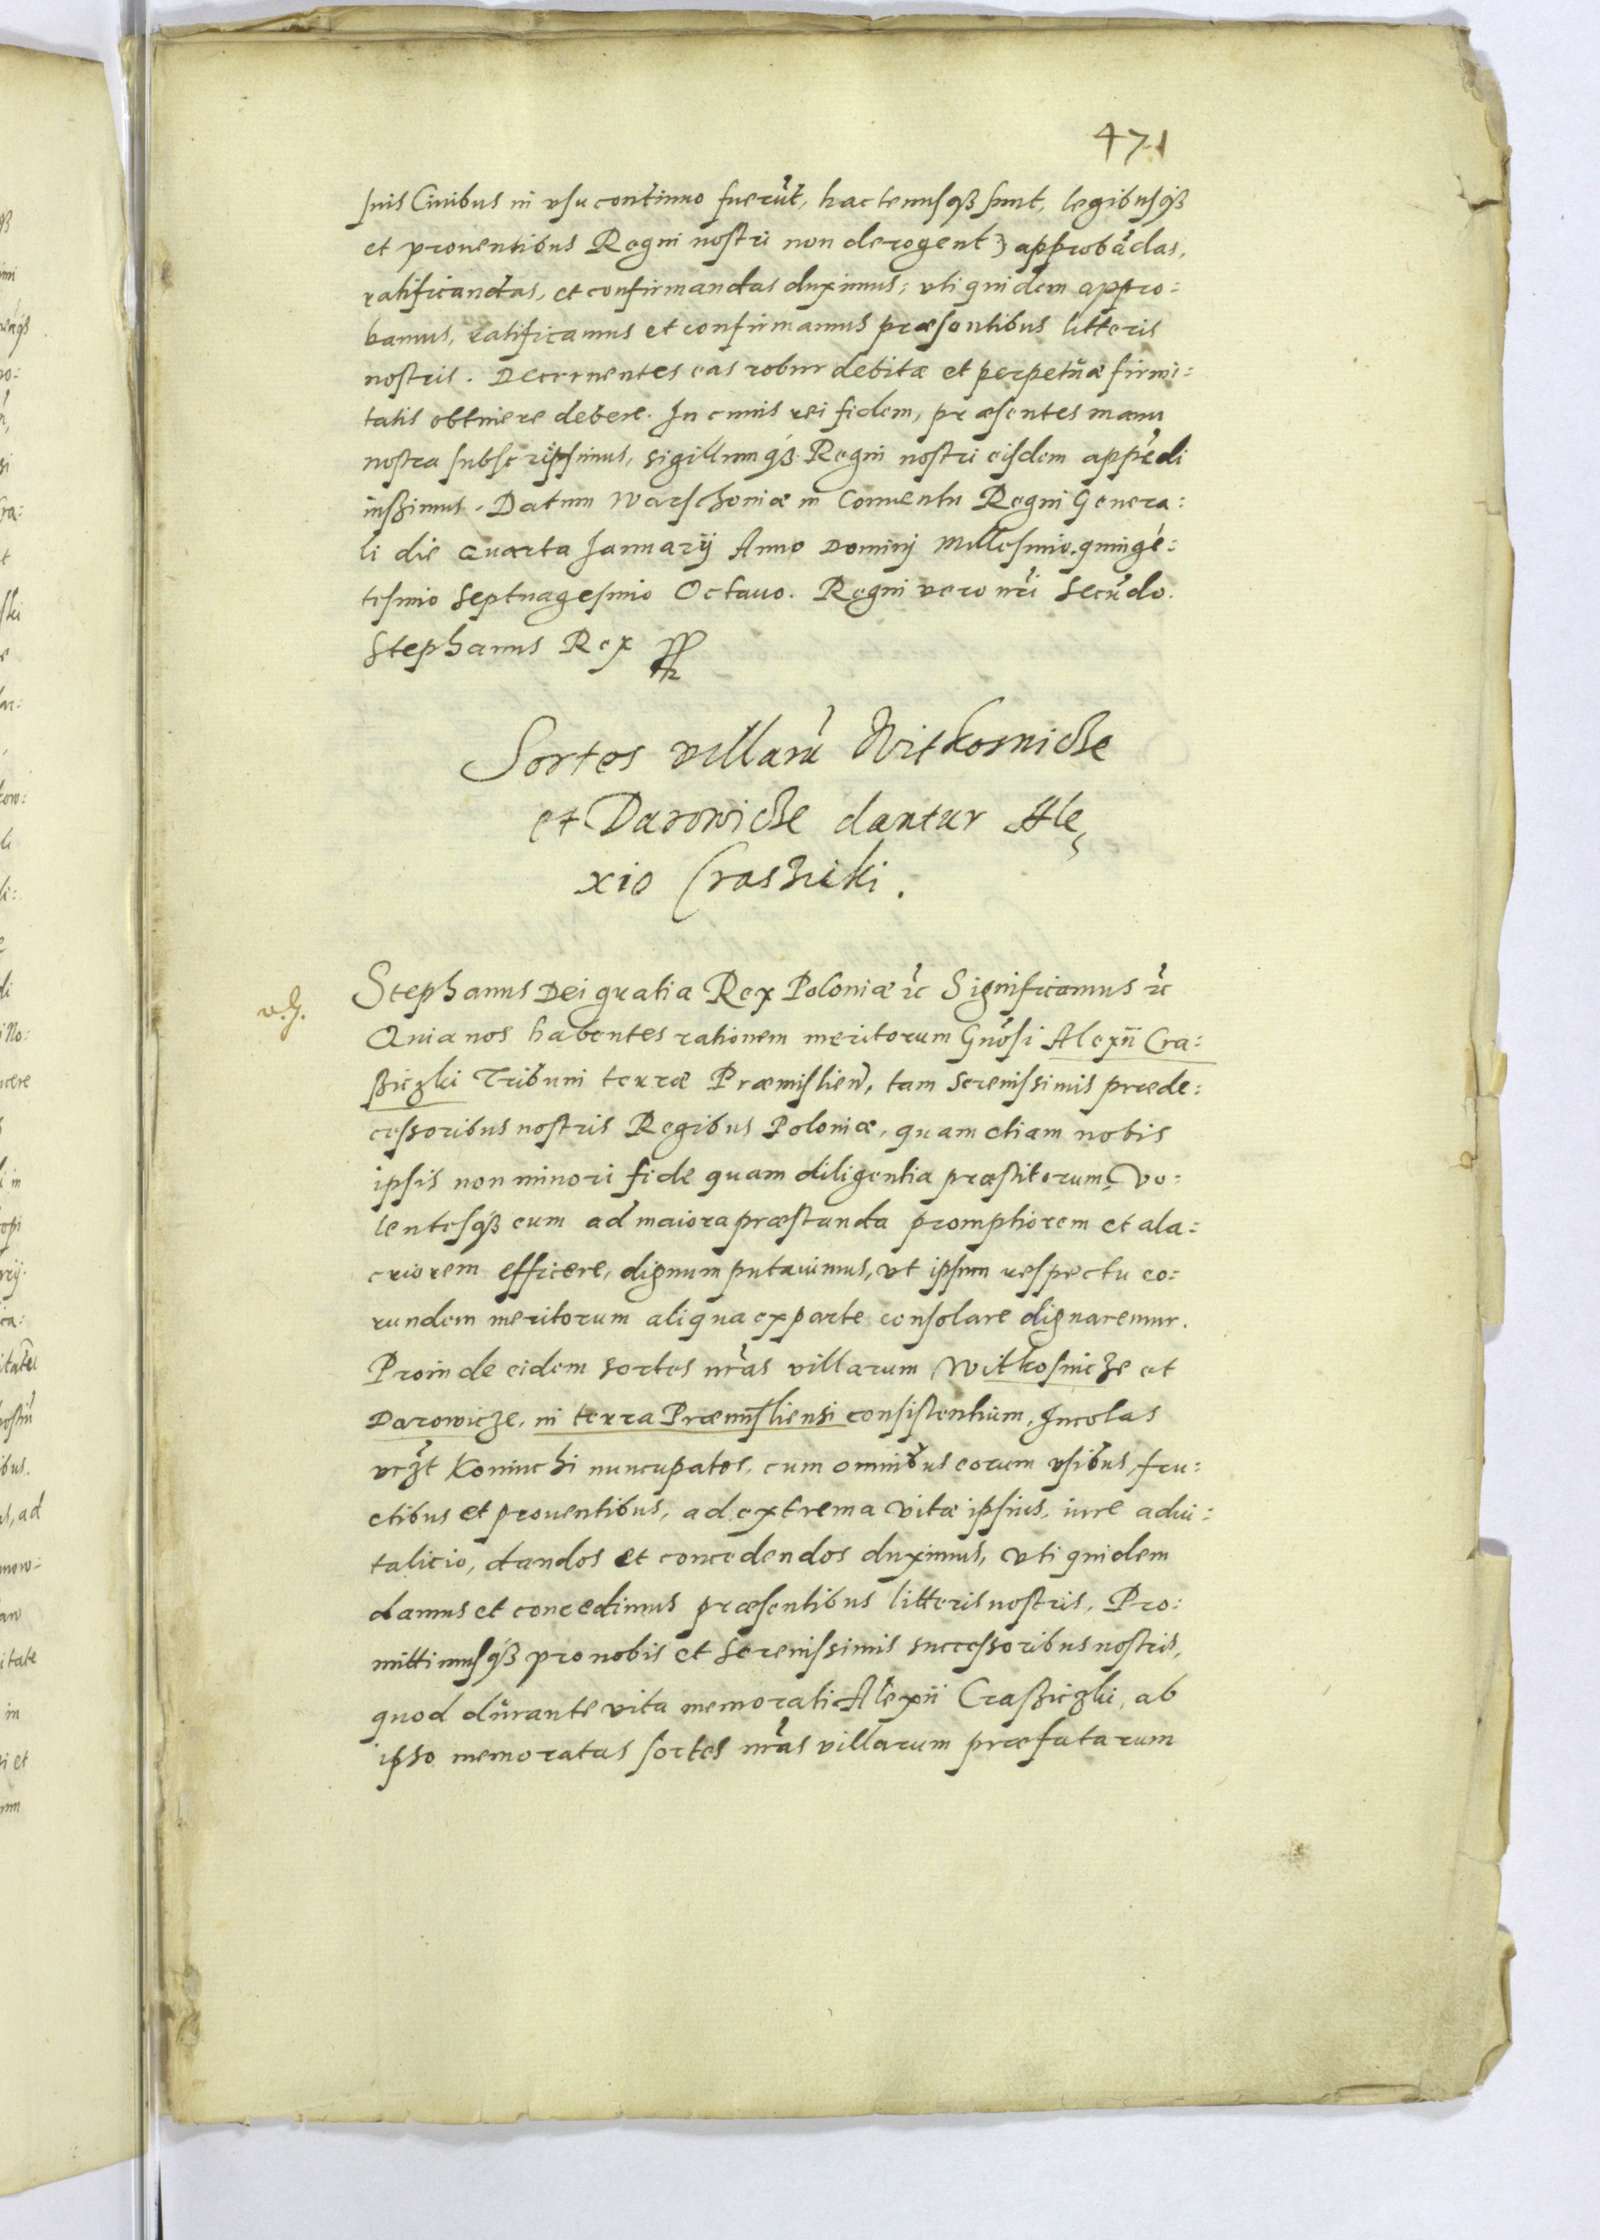 471
suis Ciuibus in usu continuo fuerūt, hactenusq́ꝫ sunt, legibusq́ꝫ
et prouentibus Regni nostri non derogent) approbādas,
ratificandas, et confirmandas duximus: vti quidem appro:
bamus, ratificamus et confirmamus præsentibus litteris
nostris. Decernentes eas robur debitæ et perpetuæ firmi:
tatis obtinere debere. In cuius rei fidem, præsentes manu
nostra subscripsimus, sigillumq́ꝫ Regni nostri eisdem appēdi
iussimus. Datum Warschoniæ in Conuentu Regni Genera:
li die Quarta Januarij Anno Dominj Millesimo, quingē:
tesimo Septuagesimo Octauo. Regni vero nr̄i Secūdo.
Stephanus Rex
Sortes villarū Witkosnicze
et Darowicze dantur Ale
xio Crasziczki.
v. J.
Stephanus Dei gratia Rex Poloniæ ꝛc Significamus ꝛc
Quia nos habentes rationem meritorum Gn̄osi Alexii Cra:
ßiczki Tribuni terræ Præmislien̄, tam Serenissimis præde:
cessoribus nostris Regibus Poloniæ, quam etiam nobis
ipsis non minori fide quam diligentia præstitorum, Vo:
lentesq́ꝫ eum ad maiora præstanda promptiorem et ala:
criorem efficere, dignum putauimus, vt ipsum respectu eo:
rundem meritorum aliqua ex parte consolare dignaremur.
Proinde eidem sortes nr̄as villarum Witkosnicze et
Darowicze, in terra Præmisliensi consistentium, Incolas
vczt Koniuchi nuncupatos, cum omnibus eorum vsibus, fru:
ctibus et prouentibus, ad extrema vitæ ipsius, iure adui:
talicio, dandos et concedendos duximus, vti quidem
damus et concedimus præsentibus litteris nostris, Pro:
mittimusq́ꝫ pro nobis et Serenissimis successoribus nostris,
quod durante vita memorati Alexii Craßiczki, ab
ipso memoratas sortes nr̄as villarum præfatarum